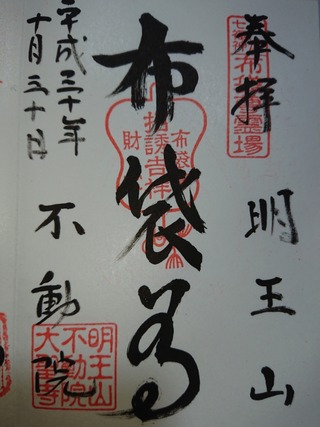 奉拝
明王山
布袋尊
不動院
平成三十年
十月三十日
布袋
財
招誘吉祥
明王山
不動院